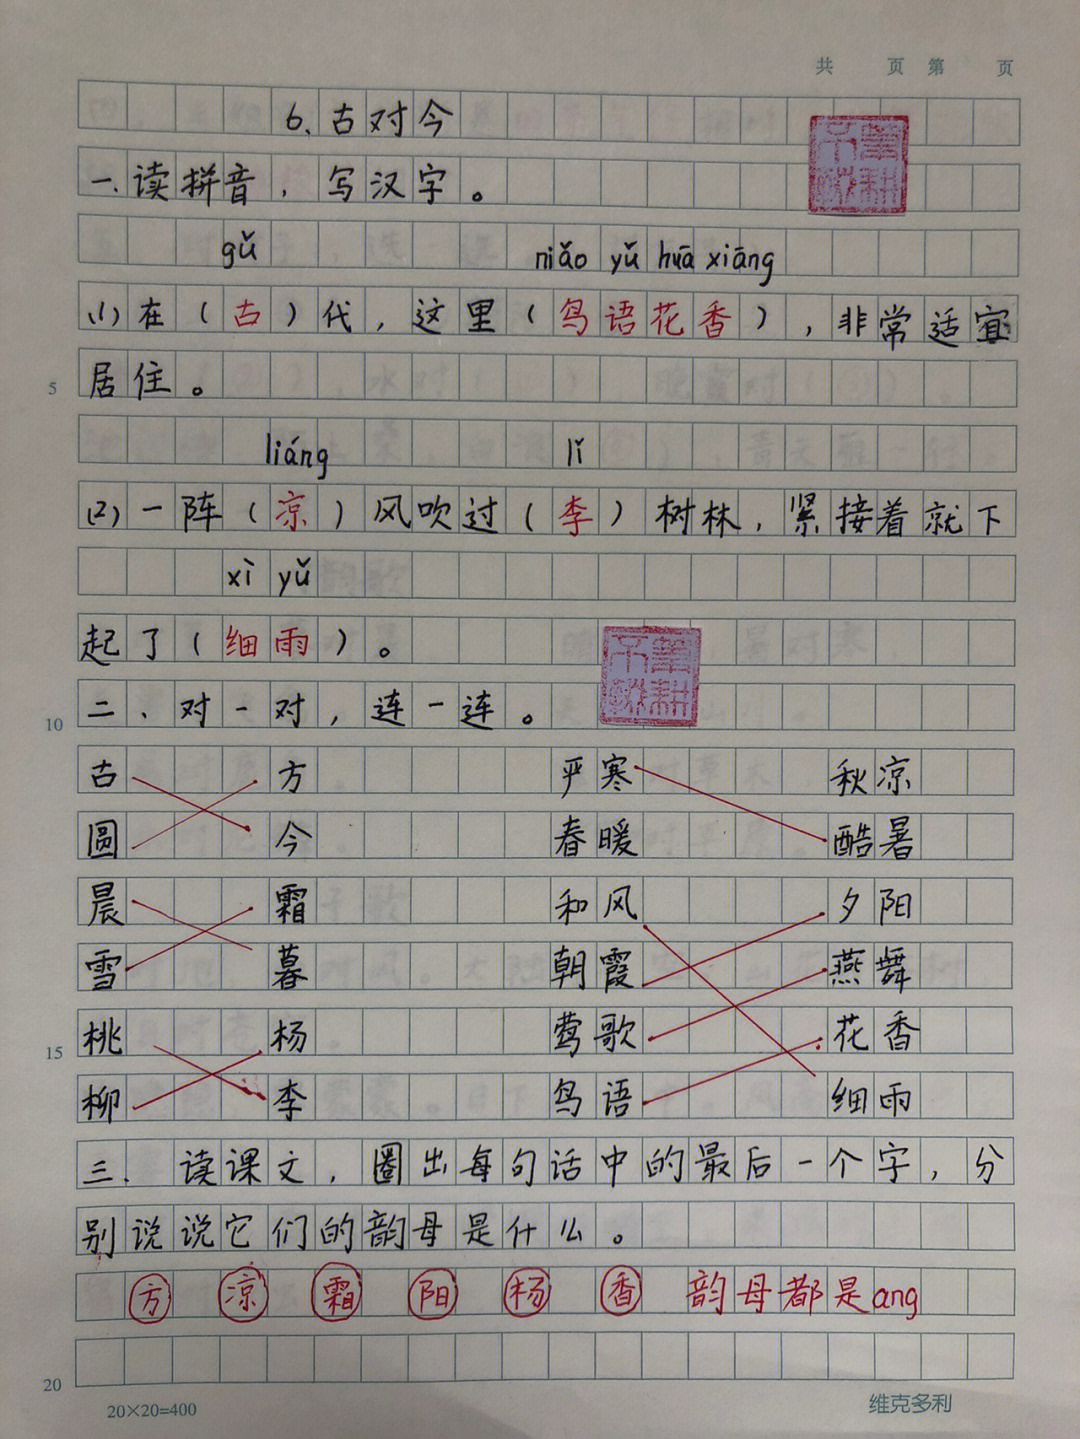 共 页 第 页
6、古对今
一.读拼音，写汉字。
gǔ niǎo yǔ huā xiāng
(1)在（古）代，这里（鸟语花香），非常适宜
5 居住。
liáng lǐ
(2)一阵（凉）风吹过（李）树林，紧接着就下
xì yǔ
起了（细雨）。
10 二、对一对，连一连。
古 方 严寒 秋凉
圆 今 春暖 酷暑
晨 霜 和风 夕阳
雪 暮 朝霞 燕舞
15 桃 杨 莺歌 花香
柳 李 鸟语 细雨
三. 读课文，圈出每句话中的最后一个字，分
别说说它们的韵母是什么。
方 凉 霜 阳 杨 香 韵母都是ang
20
20×20=400 维克多利